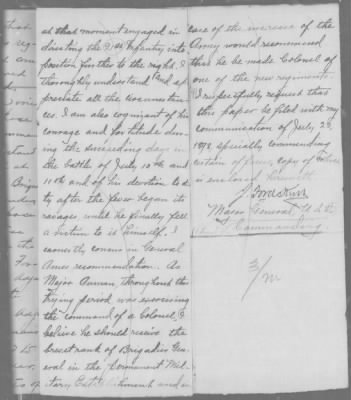 at that moment engaged in
directing the 21st Infantry into
position further to the right. I
thoroughly understand and ap
preciate all the circumstan
ces. I am also cognizant of his
courage and fortitude dur
ing the succeeding days in
the battle of July 10th and
11th and of his devotion to du
ty after the fever began its
ravages until he finally fell
a victim to it himself. I
earnestly concur in General
Ames recommendation. As
Major Auman, throughout this
trying period was exercising
the command of a Colonel, I
believe he should receive the
brevet rank of Brigadier Gen
eral in the permanent Mil
itary Establishment and in
case of the increase of the
Army would recommend
that he be made Colonel of
one of the new regiments.
I respectfully request that
this paper be filed with my
communication of July 23,
1898, specially commending
certain officers, copy of which
is enclosed herewith.
J. Ford Kent
Major General, U.S.V.
Commanding.